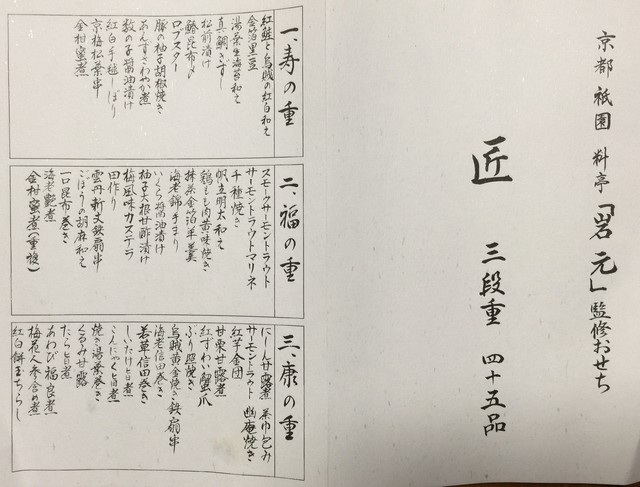 京都 祇園 料亭「岩元」監修おせち
匠 三段重 四十五品
一、寿の重
紅鮭と烏賊の紅白和え
金箔黒豆
湯葉生海苔和え
真鯛きずし
松前漬け
鰆昆布〆
ロブスター
豚の柚子胡椒焼き
あんずさわやか煮
数の子醤油漬け
紅白手毬しぼり
京梅松葉串
金柑蜜煮
二、福の重
スモークサーモントラウト
サーモントラウトマリネ
千種焼き
帆立明太和え
鶏もも肉黄味焼き
抹茶金箔羊羹
海老錦手まり
いくら醤油漬け
柚子大根甘酢漬け
梅風味カステラ
田作り
雲丹新丈鉄扇串
ごぼうの胡麻和え
一口昆布巻き
海老艶煮
金柑蜜煮(重複)
三、康の重
にしん甘露煮 茶巾包み
サーモントラウト 幽庵焼き
紅芋金団
甘栗甘露煮
紅ずわい蟹爪
ぶり照焼き
烏賊黄金焼き鉄扇串
海老信田巻き
若草信田巻き
しいたけ旨煮
こんにゃく旨煮
焼き湯葉巻き
くるみ甘露
たらこ旨煮
あわび福良煮
梅花人参含め煮
紅白餅玉ちらし